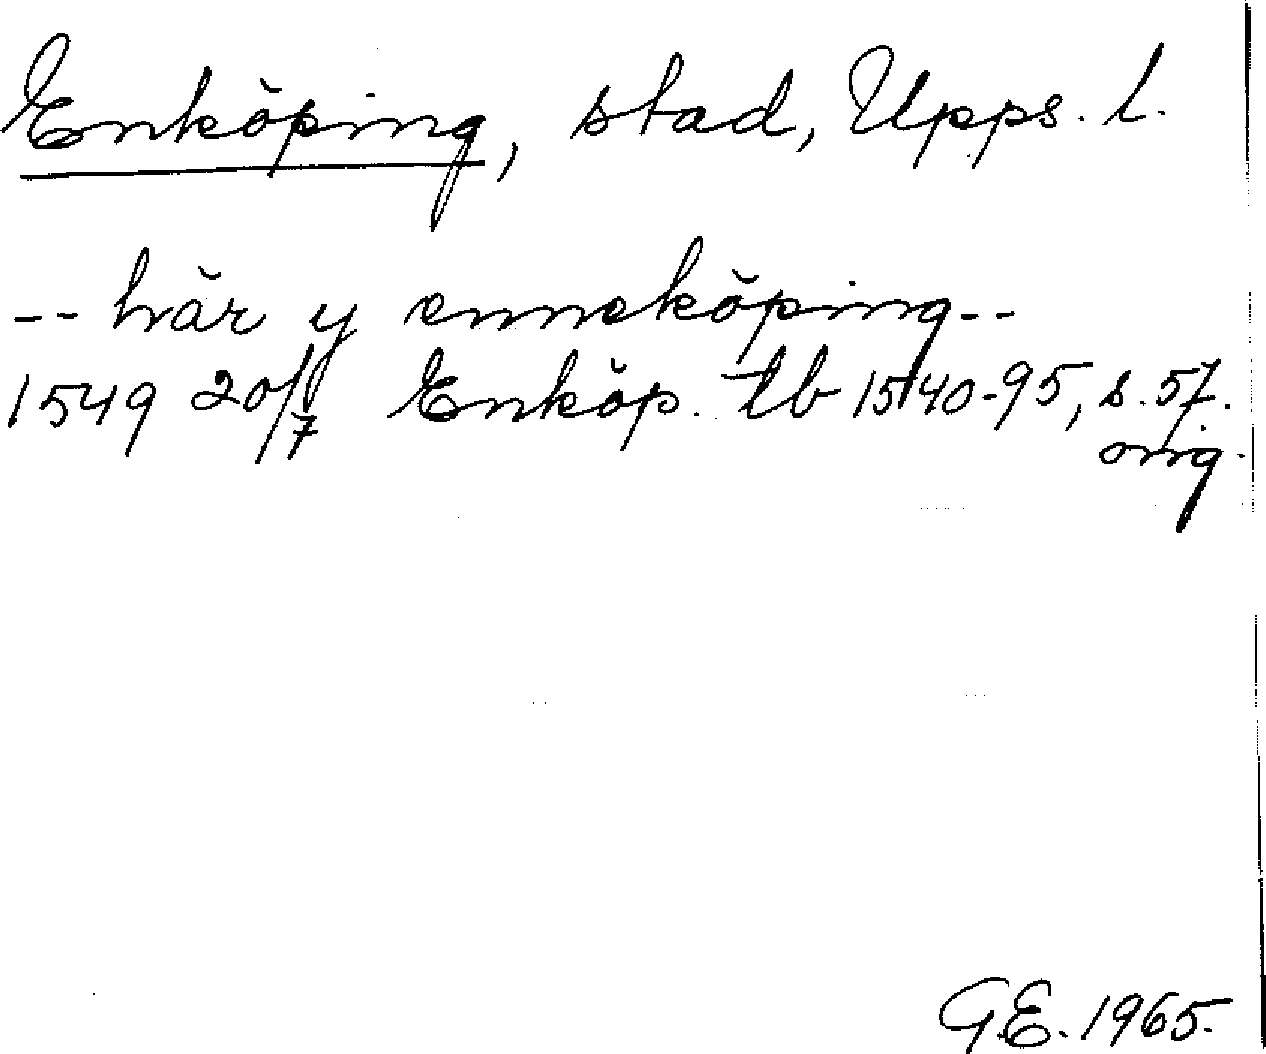 Enköping, stad, Upps. l.
-- här y enneköping --
1549 20/7 Enköp. tb 1540-95, s. 57.
orig.
G.E. 1965.